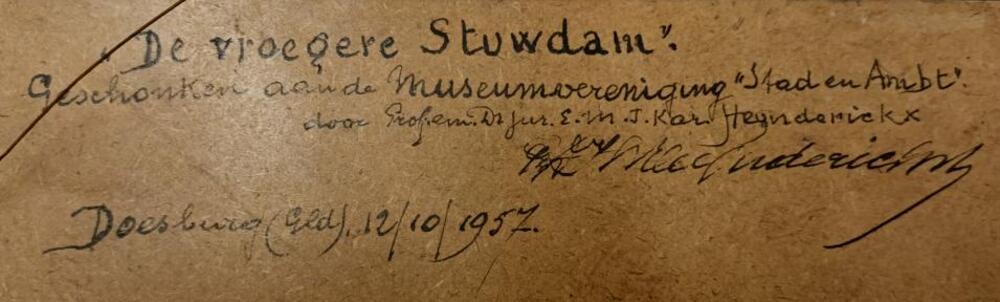 "De vroegere Stuwdam".
Geschonken aan de Museumvereniging "Stad en Ambt".
door Prof. em. Dr jur. E. M. J. Karl Heynderickx
Doesburg (Gld), 12/10/1957.